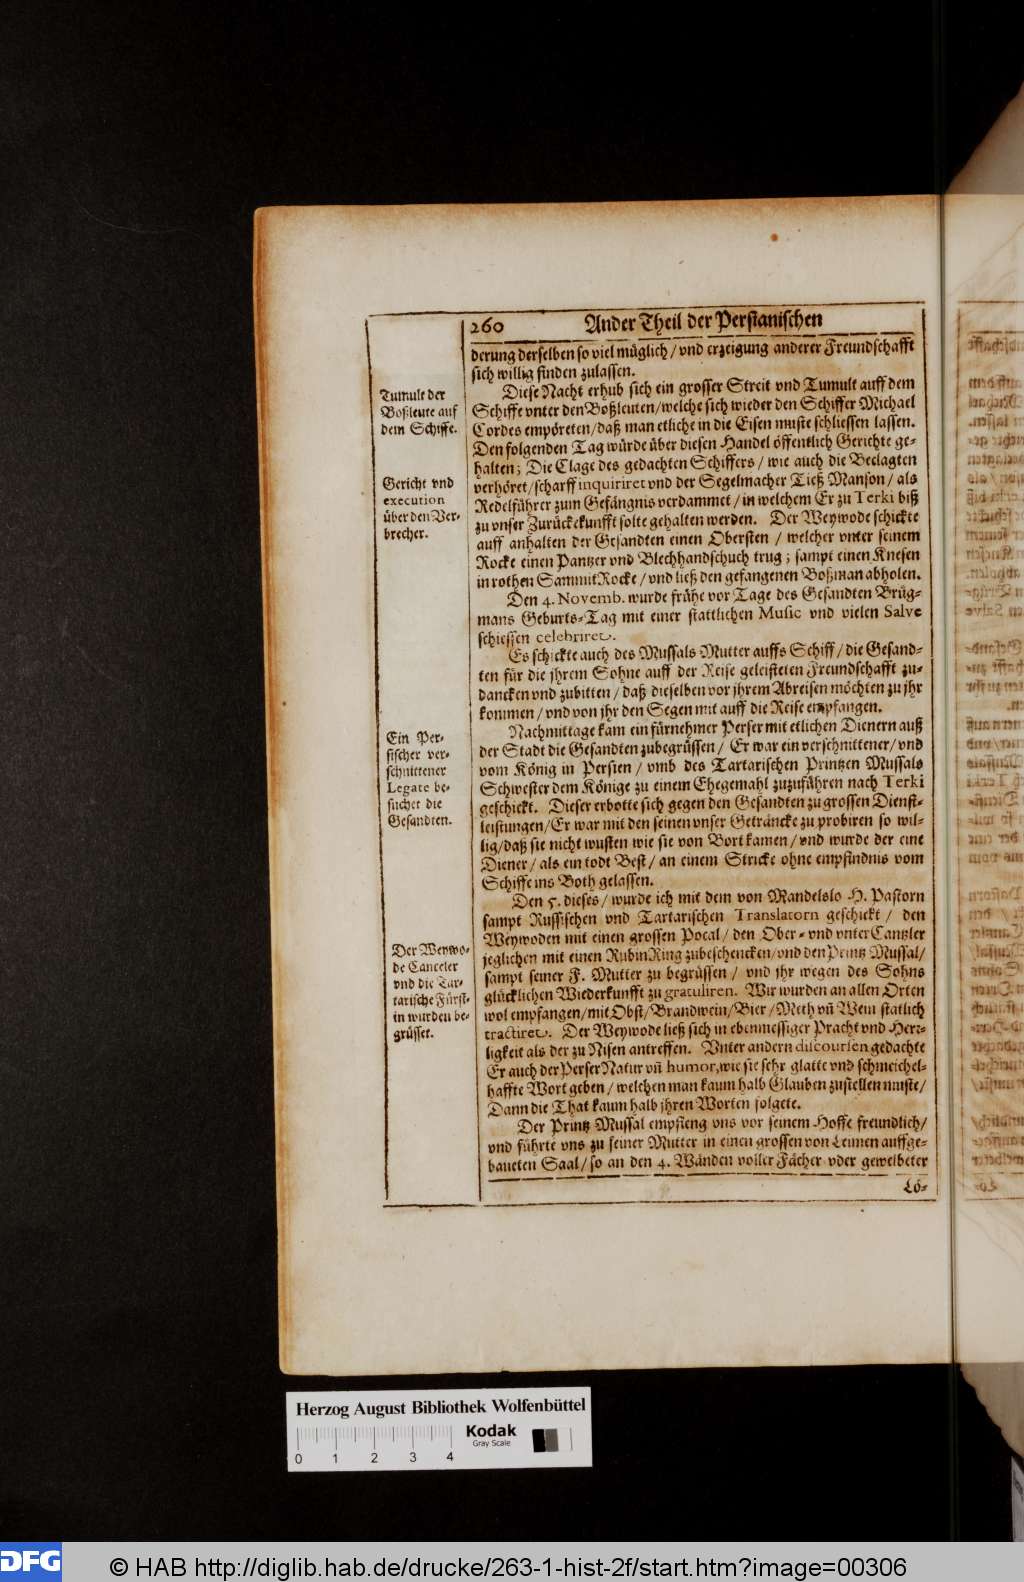 260 Ander Theil der Persianischen
derung derselben so viel müglich / vnd erzeigung anderer Freundschafft
sich willig finden zulassen.
Diese Nacht erhub sich ein grosser Streit vnd Tumult auff dem
Schiffe vnter den Boßleuten / welche sich wieder den Schiffer Michael
Cordes empöreten / daß man etliche in die Eisen muste schliessen lassen.
Den folgenden Tag würde über diesen Handel öffentlich Gerichte ge-
halten; Die Clage des gedachten Schiffers / wie auch die Beclagten
verhöret / scharff inquiriret vnd der Segelmacher Tieß Manson / als
Redelführer zum Gefängnis verdammet / in welchem Er zu Terki biß
zu vnser Zurückekunfft solte gehalten werden. Der Weywode schickte
auff anhalten der Gesandten einen Obersten / welcher vnter seinem
Rocke einen Pantzer vnd Blechhandschuch trug; sampt einen Knesen
in rothen Sammit Rocke / vnd ließ den gefangenen Boßman abholen.
Den 4. Novemb. wurde frühe vor Tage des Gesandten Brüg-
mans Geburts-Tag mit einer stattlichen Music vnd vielen Salve
schiessen celebriret.
Es schickte auch des Mussals Mutter auffs Schiff / die Gesand-
ten für die jhrem Sohne auff der Reise geleisteten Freundschafft zu-
dancken vnd zubitten / daß dieselben vor jhrem Abreisen möchten zu jhr
kommen / vnd von jhr den Segen mit auff die Reise empfangen.
Nachmittage kam ein fürnehmer Perser mit etlichen Dienern auß
der Stadt die Gesandten zubegrüssen / Er war ein verschnittener / vnd
vom König in Persien / vmb des Tartarischen Printzen Mussals
Schwester dem Könige zu einem Ehegemahl zuzuführen nach Terki
geschickt. Dieser erbotte sich gegen den Gesandten zu grossen Dienst-
leistungen / Er war mit den seinen vnser Geträncke zu probiren so wil-
lig / daß sie nicht wusten wie sie von Bort kamen / vnd wurde der eine
Diener / als ein todt Best / an einem Stricke ohne empfindnis vom
Schiffe ins Both gelassen.
Den 5. dieses / wurde ich mit dem von Mandelslo H. Pastorn
sampt Russischen vnd Tartarischen Translatorn geschickt / den
Weywoden mit einen grossen Pocal / den Ober- vnd vnter Cantzler
jeglichen mit einen Rubin Ring zubeschencken / vnd den Printz Mussal /
sampt seiner F. Mutter zu begrüssen / vnd jhr wegen des Sohns
glücklichen Wiederkunfft zu gratuliren. Wir wurden an allen Orten
wol empfangen / mit Obst / Brandwein / Bier / Meth vñ Wein statlich
tractiret. Der Weywode ließ sich in ebenmessiger Pracht vnd Herr-
ligkeit als der zu Nisen antreffen. Vnter andern discoursen gedachte
Er auch der Perser Natur vñ humor, wie sie sehr glatte vnd schmeichel-
haffte Wort geben / welchen man kaum halb Glauben zustellen muste /
Dann die That kaum halb jhren Worten folgete.
Der Printz Mussal empfieng vns vor seinem Hoffe freundlich /
vnd führte vns zu seiner Mutter in einen grossen von Leimen auffge-
baueten Saal / so an den 4. Wänden voller Fächer oder gewelbeter
Lö-
Tumult der
Boßleute auf
dem Schiffe.
Gericht vnd
execution
über den Ver-
brecher.
Ein Per-
sischer ver-
schnittener
Legate be-
suchet die
Gesandten.
Der Weywo-
de Canceler
vnd die Tar-
tarische Fürst-
in wurden be-
grüsset.
Herzog August Bibliothek Wolfenbüttel
Kodak
Gray Scale
0 1 2 3 4
DFG
© HAB http://diglib.hab.de/drucke/263-1-hist-2f/start.htm?image=00306